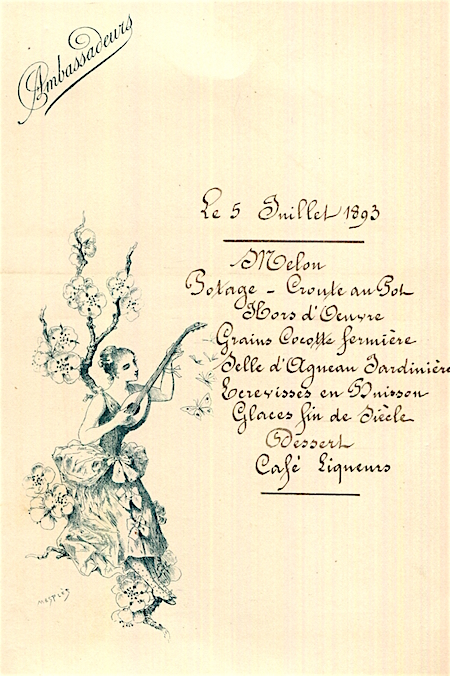 Ambassadeurs
Le 5 Juillet 1893
Melon
Potage - Croute au Pot
Hors d'Oeuvre
Grains Cocotte fermière
Selle d'Agneau Jardinière
Ecrevisses en Buisson
Glaces fin de Siècle
Dessert
Café Liqueurs
MESPLES